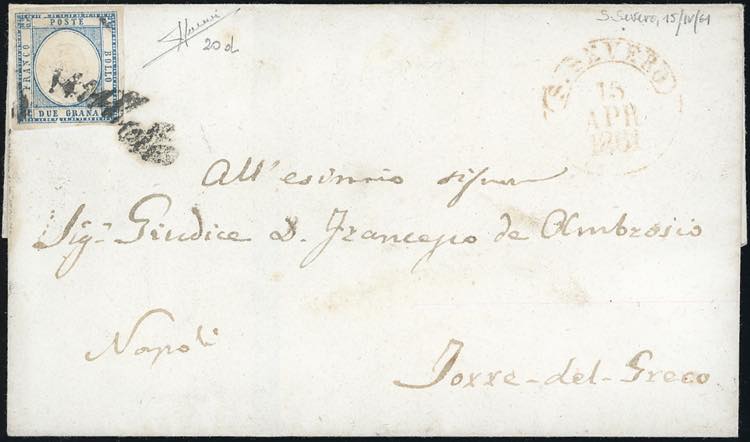 POSTE
FRANCO
BOLLO
DUE GRANA
20 d
S. Severo, 15/IV/61
S. SEVERO
15
APR
1861
All'esimio signor
Sig. Giudice D. Francesco de Ambrosio
Napoli
Torre-del-Greco